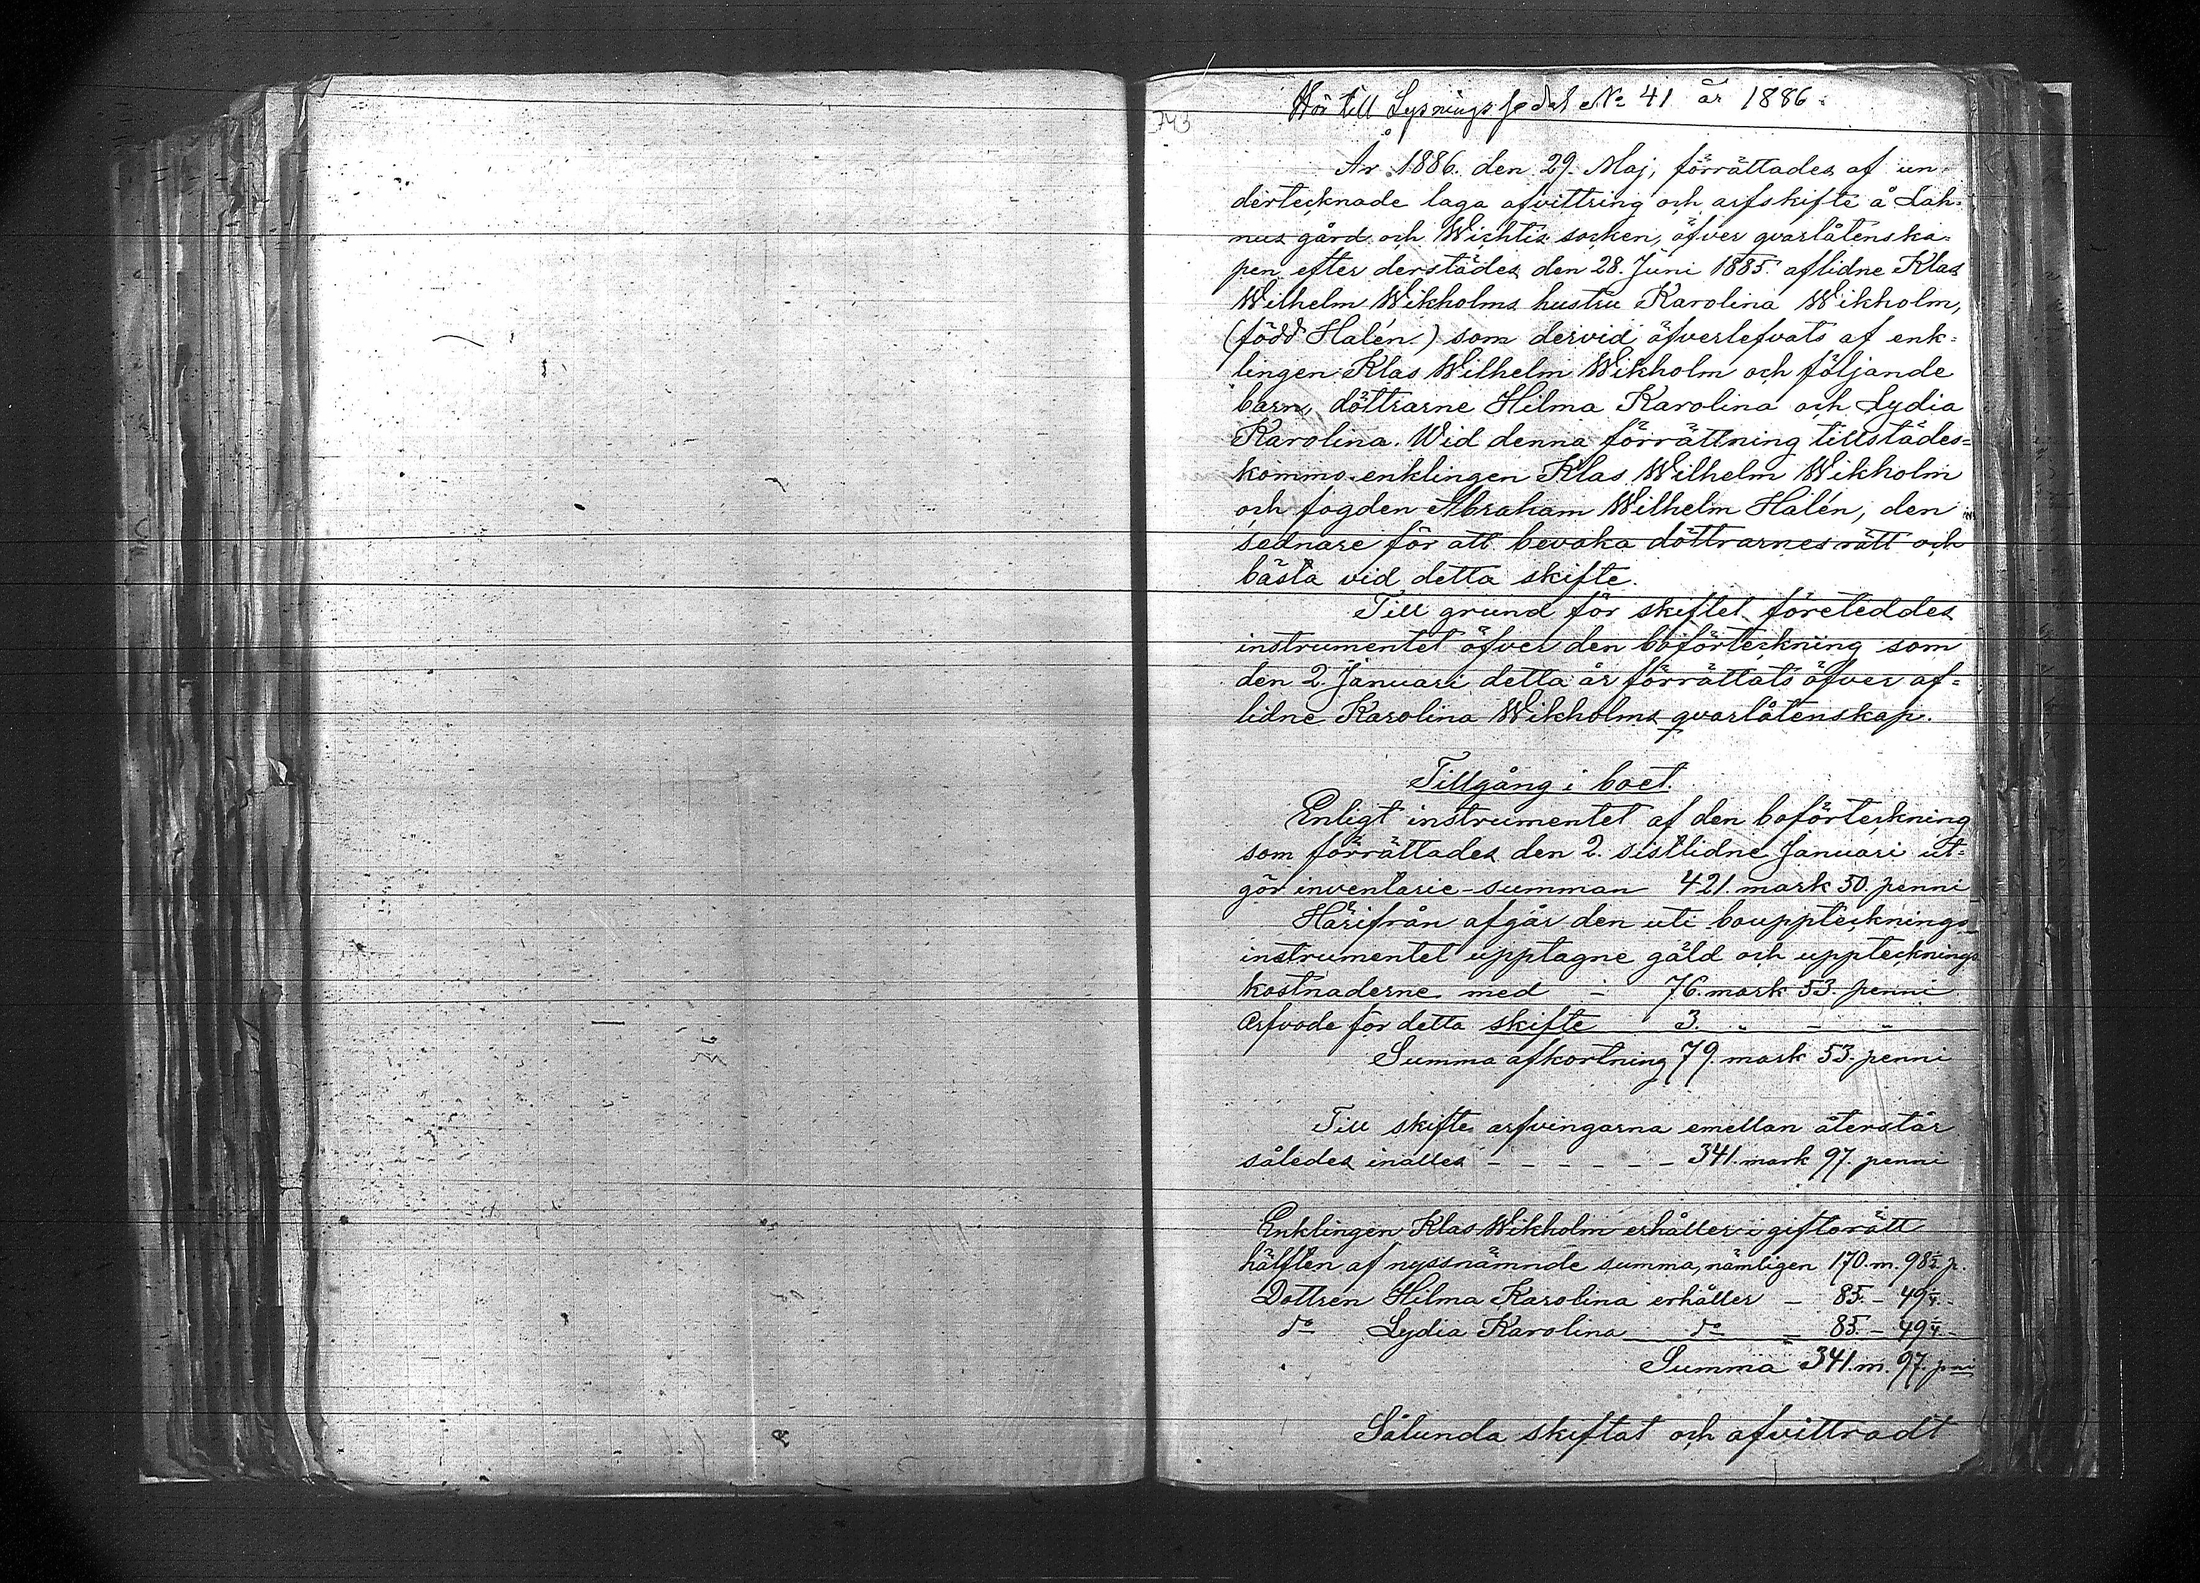 Hör till Lysnings sedel No 41 år 1886.
743
År 1886. den 29. Maj, förrättades af un-
dertecknade laga afvittring och arfskifte å Lah-
nus gård och Wichtis socken, öfver qvarlåtenska-
pen efter derstädes den 28. Juni 1885. aflidne Klas
Wilhelm Wikholms hustru Karolina Wikholm,
(född Halén.) som dervid öfverlefvats af enk-
lingen Klas Wilhelm Wikholm och följande
barn, döttrarne Hilma Karolina och Lydia
Karolina. Wid denna förrättning tillstädes-
kommo enklingen Klas Wilhelm Wikholm
och fogden Abraham Wilhelm Halén, den
sednare för att bevaka döttrarnes rätt och
bästa vid detta skifte.
Till grund för skiftet företeddes
instrumentet öfver den boförteckning som
den 2. Januari detta år förrättats öfver af-
lidne Karolina Wikholms qvarlåtenskap.
Tillgång i boet.
Enligt instrumentet af den boförteckning
som förrättades den 2. sistlidne Januari ut-
gör inventarie-summan 421. mark 50. penni
Härifrån afgår den uti boupptecknings-
instrumentet upptagne gäld och upptecknings
kostnaderne med - 76. mark 53. penni
Arfvode för detta skifte 3. " - "
Summa afkortning 79. mark 53. penni
Till skifte arfvingarna emellan återstår
således inalles - - - - - - 341. mark 97. penni
Enklingen Klas Wikholm erhåller i giftorätt
hälften af nyssnämnde summa, nämligen 170. m. 98½ p.
Dottren Hilma Karolina erhåller - 85. - 49¼ -
do Lydia Karolina do = 85. - 49¼ -
Summa 341. m. 97. pni
Sålunda skiftat och afvittradt